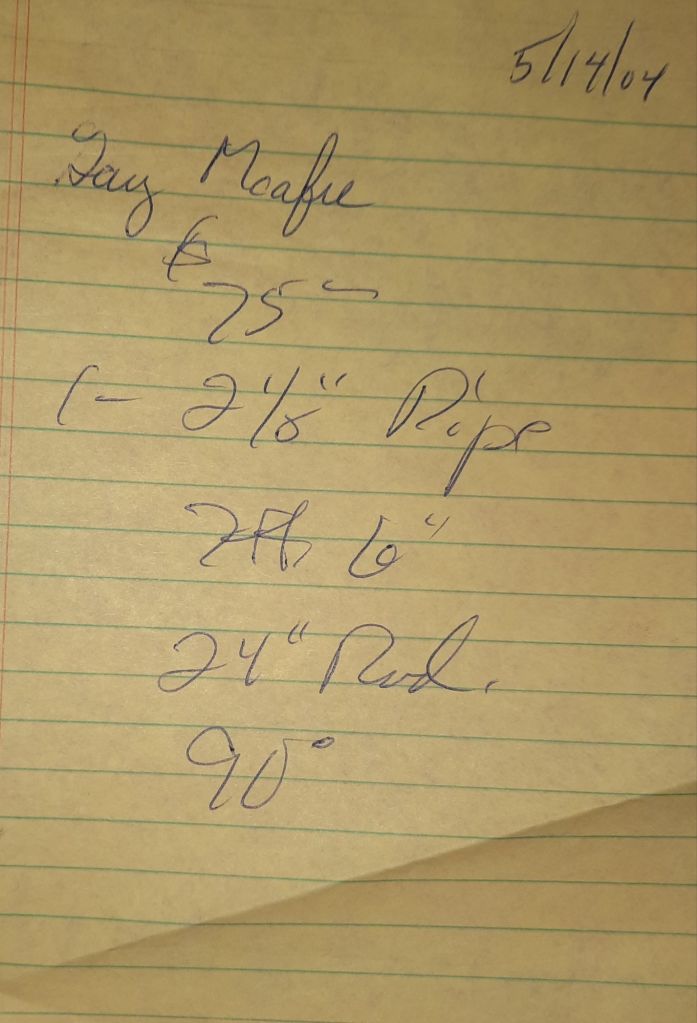 5/14/04
Gary Mcafee
$
75 –
1 – 2 1/8" Pipe
7ft 6"
24" Rad.
90°